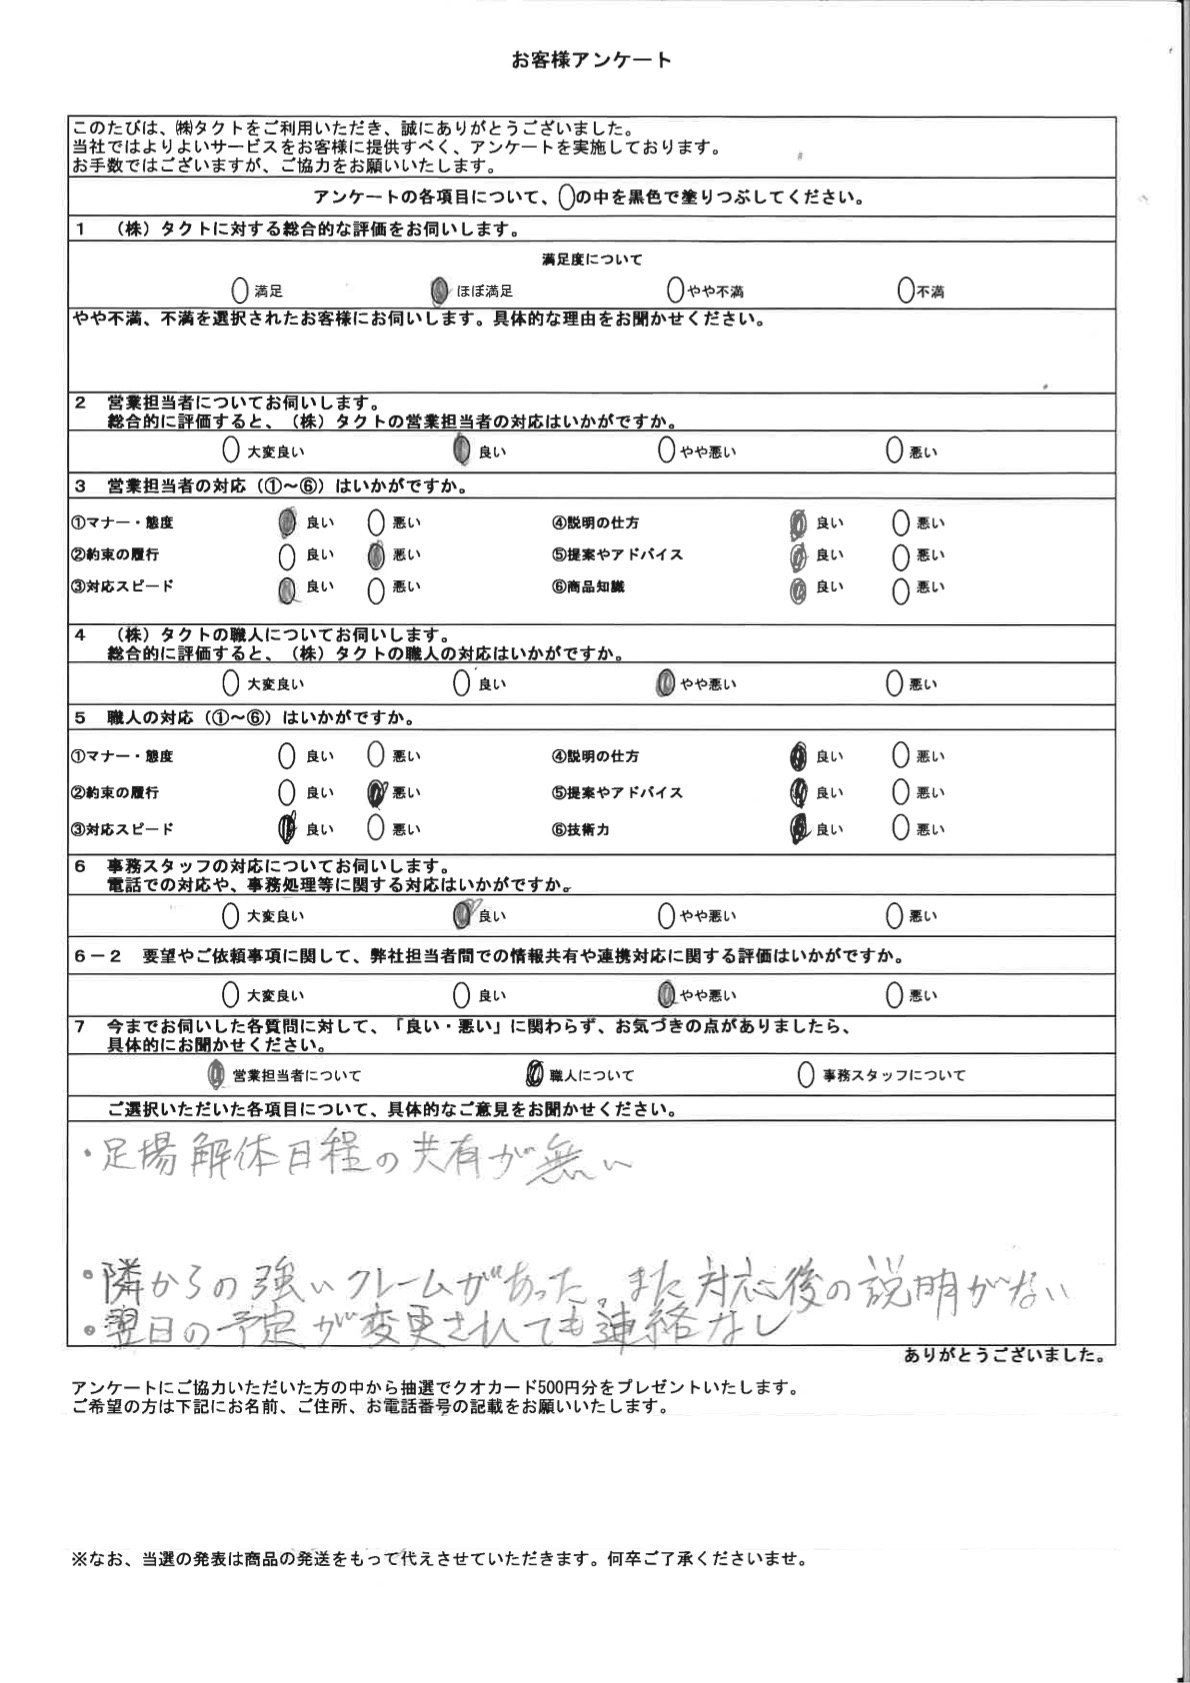 お客様アンケート
このたびは、㈱タクトをご利用いただき、誠にありがとうございました。
当社ではよりよいサービスをお客様に提供すべく、アンケートを実施しております。
お手数ではございますが、ご協力をお願いいたします。
アンケートの各項目について、○の中を黒色で塗りつぶしてください。
1 （株）タクトに対する総合的な評価をお伺いします。
満足度について
○満足 ●ほぼ満足 ○やや不満 ○不満
やや不満、不満を選択されたお客様にお伺いします。具体的な理由をお聞かせください。
2 営業担当者についてお伺いします。
総合的に評価すると、（株）タクトの営業担当者の対応はいかがですか。
○大変良い ●良い ○やや悪い ○悪い
3 営業担当者の対応（①～⑥）はいかがですか。
①マナー・態度 ●良い ○悪い ④説明の仕方 ●良い ○悪い
②約束の履行 ○良い ●悪い ⑤提案やアドバイス ●良い ○悪い
③対応スピード ●良い ○悪い ⑥商品知識 ●良い ○悪い
4 （株）タクトの職人についてお伺いします。
総合的に評価すると、（株）タクトの職人の対応はいかがですか。
○大変良い ○良い ●やや悪い ○悪い
5 職人の対応（①～⑥）はいかがですか。
①マナー・態度 ○良い ○悪い ④説明の仕方 ●良い ○悪い
②約束の履行 ○良い ●悪い ⑤提案やアドバイス ●良い ○悪い
③対応スピード ●良い ○悪い ⑥技術力 ●良い ○悪い
6 事務スタッフの対応についてお伺いします。
電話での対応や、事務処理等に関する対応はいかがですか。
○大変良い ●良い ○やや悪い ○悪い
6－2 要望やご依頼事項に関して、弊社担当者間での情報共有や連携対応に関する評価はいかがですか。
○大変良い ○良い ●やや悪い ○悪い
7 今までお伺いした各質問に対して、「良い・悪い」に関わらず、お気づきの点がありましたら、
具体的にお聞かせください。
●営業担当者について ●職人について ○事務スタッフについて
ご選択いただいた各項目について、具体的なご意見をお聞かせください。
・足場解体日程の共有が無い
・隣からの強いクレームがあった。また対応後の説明がない
・翌日の予定が変更されても連絡なし
ありがとうございました。
アンケートにご協力いただいた方の中から抽選でクオカード500円分をプレゼントいたします。
ご希望の方は下記にお名前、ご住所、お電話番号の記載をお願いいたします。
※なお、当選の発表は商品の発送をもって代えさせていただきます。何卒ご了承くださいませ。